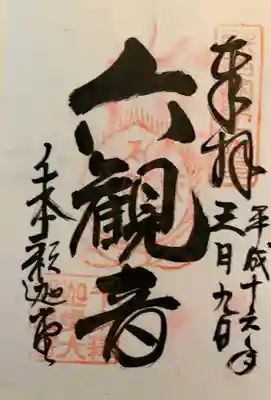 奉拝
平成十六年
三月九日
六観音
千本釈迦堂